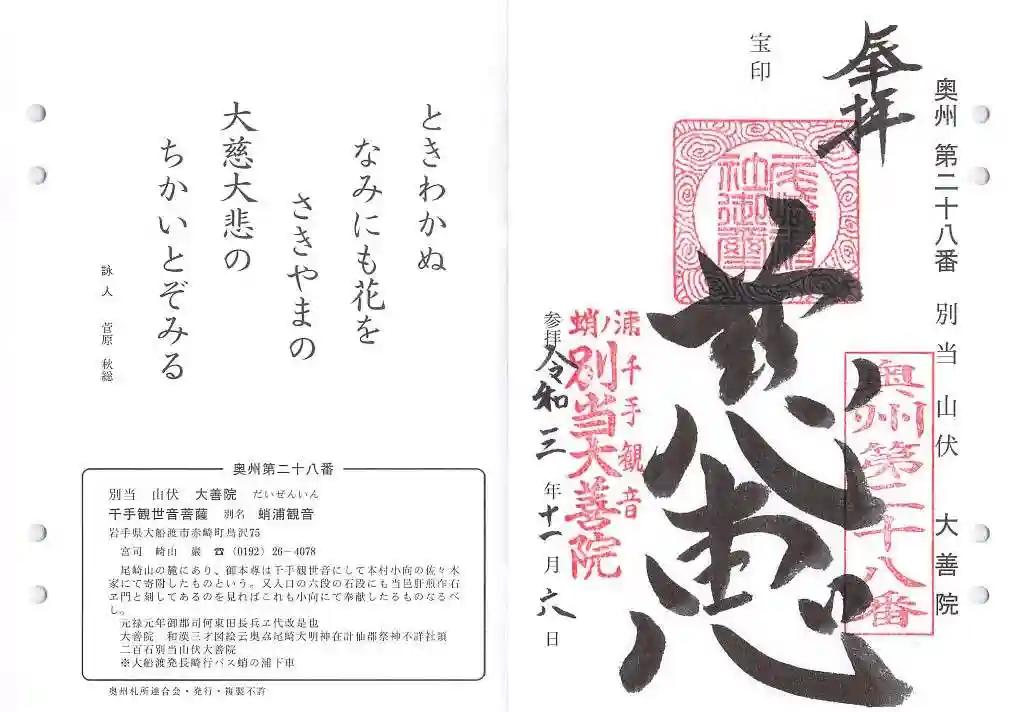 奉拝
奥州 第二十八番 別当 山伏 大善院
宝印
慈恵
奥州第二十八番
蛸ノ浦
千手観音
別当大善院
参拝 令和三年十一月六日
ときわかぬ
なみにも花を
さきやまの
大慈大悲の
ちかいとぞみる
詠人 菅原 秋総
奥州第二十八番
別当 山伏 大善院 だいぜんいん
千手観世音菩薩 別名 蛸浦観音
岩手県大船渡市赤崎町鳥沢75
宮司 崎山 巌 ☎(0192)26-4078
尾崎山の麓にあり、御本尊は千手観世音にして本村小向の佐々木
家にて寄附したものという。又入口の六段の石段にも当邑肝煎作右
ヱ門と刻してあるのを見ればこれも小向にて奉献したるものなるべ
し。
元禄元年御郡司何東田長兵ヱ代改是也
大善院 和漢三才図絵云奥尓尾崎大明神在計仙郡祭神不詳社領
二百石別当山伏大善院
※大船渡発長崎行バス蛸の浦下車
奥州札所連合会・発行・複製不許